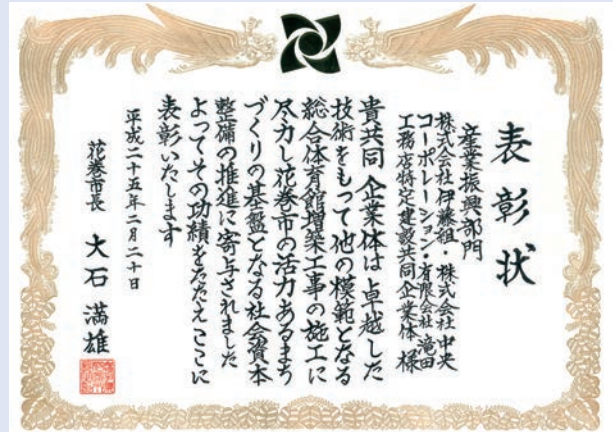 表彰状
産業振興部門
株式会社伊藤組・株式会社中央
コーポレーション・有限会社滝田
工務店特定建設共同企業体 様
貴共同企業体は卓越した
技術をもって他の模範となる
総合体育館増築工事の施工に
尽力し花巻市の活力あるまち
づくりの基盤となる社会資本
整備の推進に寄与されました
よってその功績をたたえここに
表彰いたします
平成二十五年二月二十日
花巻市長 大石満雄